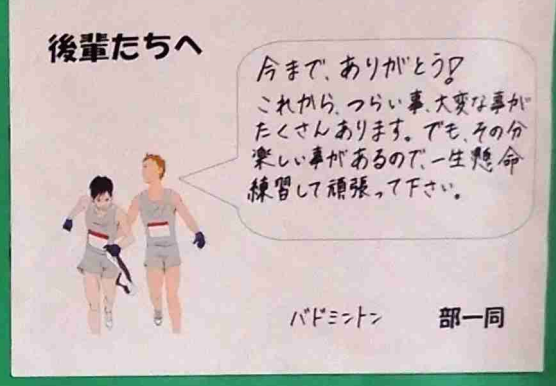 後輩たちへ
今まで、ありがとう!
これから、つらい事、大変な事が
たくさんあります。でも、その分
楽しい事があるので、一生懸命
練習して頑張って下さい。
バドミントン 部一同